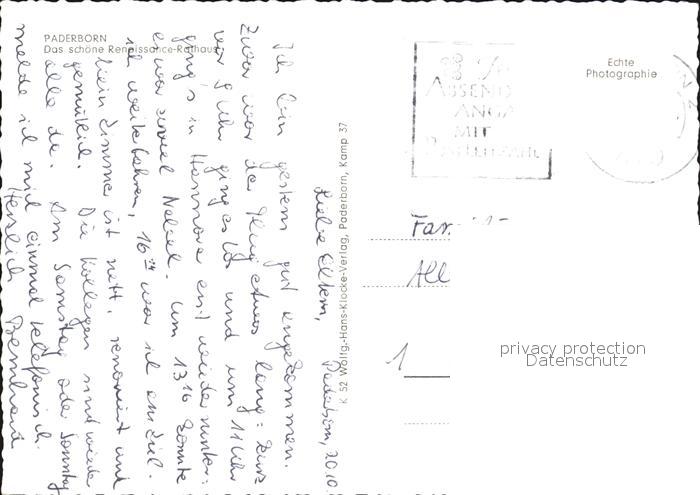 PADERBORN
Das schöne Renaissance-Rathaus
Echte
Photographie
ABSEND
ANGA
MIT
K 52 Wolfg.-Hans-Klocke-Verlag, Paderborn, Kamp 37
Paderborn, 20.10
Liebe Eltern,
Ich bin gestern gut angekommen.
Zwar war der Flug etwas lang: kurz
vor 9 Uhr ging es los und um 11 Uhr
ging's in Hannover erst wieder runter:
es war soviel Nebel. Um 13 16 konnte
ich weiterfahren, 16 war ich am Ziel.
Mein Zimmer ist nett, renoviert und
gemütlich. Die Kollegen sind wieder
alle da. Am Samstag oder Sonntag
melde ich mich einmal telefonisch.
Herzlich Bernhard
Fam.
All
1
privacy protection
Datenschutz